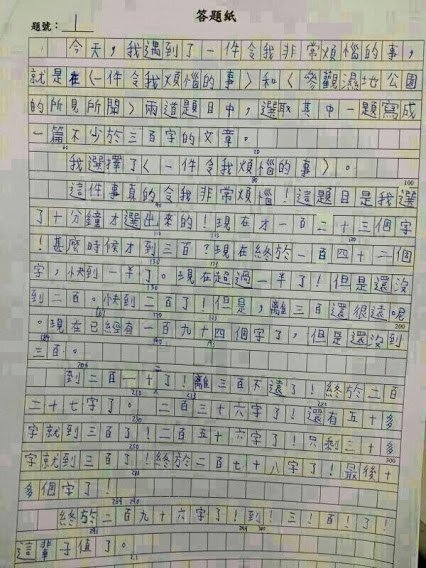 答題紙
題號：1
今天，我遇到了一件令我非常煩惱的事，
就是在〈一件令我煩惱的事〉和〈參觀濕地公園
的所見所聞〉兩道題目中，選取其中一題寫成
一篇不少於三百字的文章。
我選擇了〈一件令我煩惱的事〉。
這件事真的令我非常煩惱！這題目是我選
了十分鐘才選出來的！現在才一百二十三個字
！甚麼時候才到三百？現在終於一百四十二個
字，快到一半了。現在超過一半了！但是還沒
到二百。快到二百了！但是，離三百還很遠呢
。現在已經有一百九十四個字了，但是還沒到
三百。
到二百一十了！離三百不遠了！終於二百
二十七字了。二百三十六字了！還有五十多
字就到三百了！二百五十六字了！只剩三十多
字就到三百了！終於二百七十八字了！最後十
多個字了！
終於二百九十六字了！到！三！百！了！
這輩子值了。